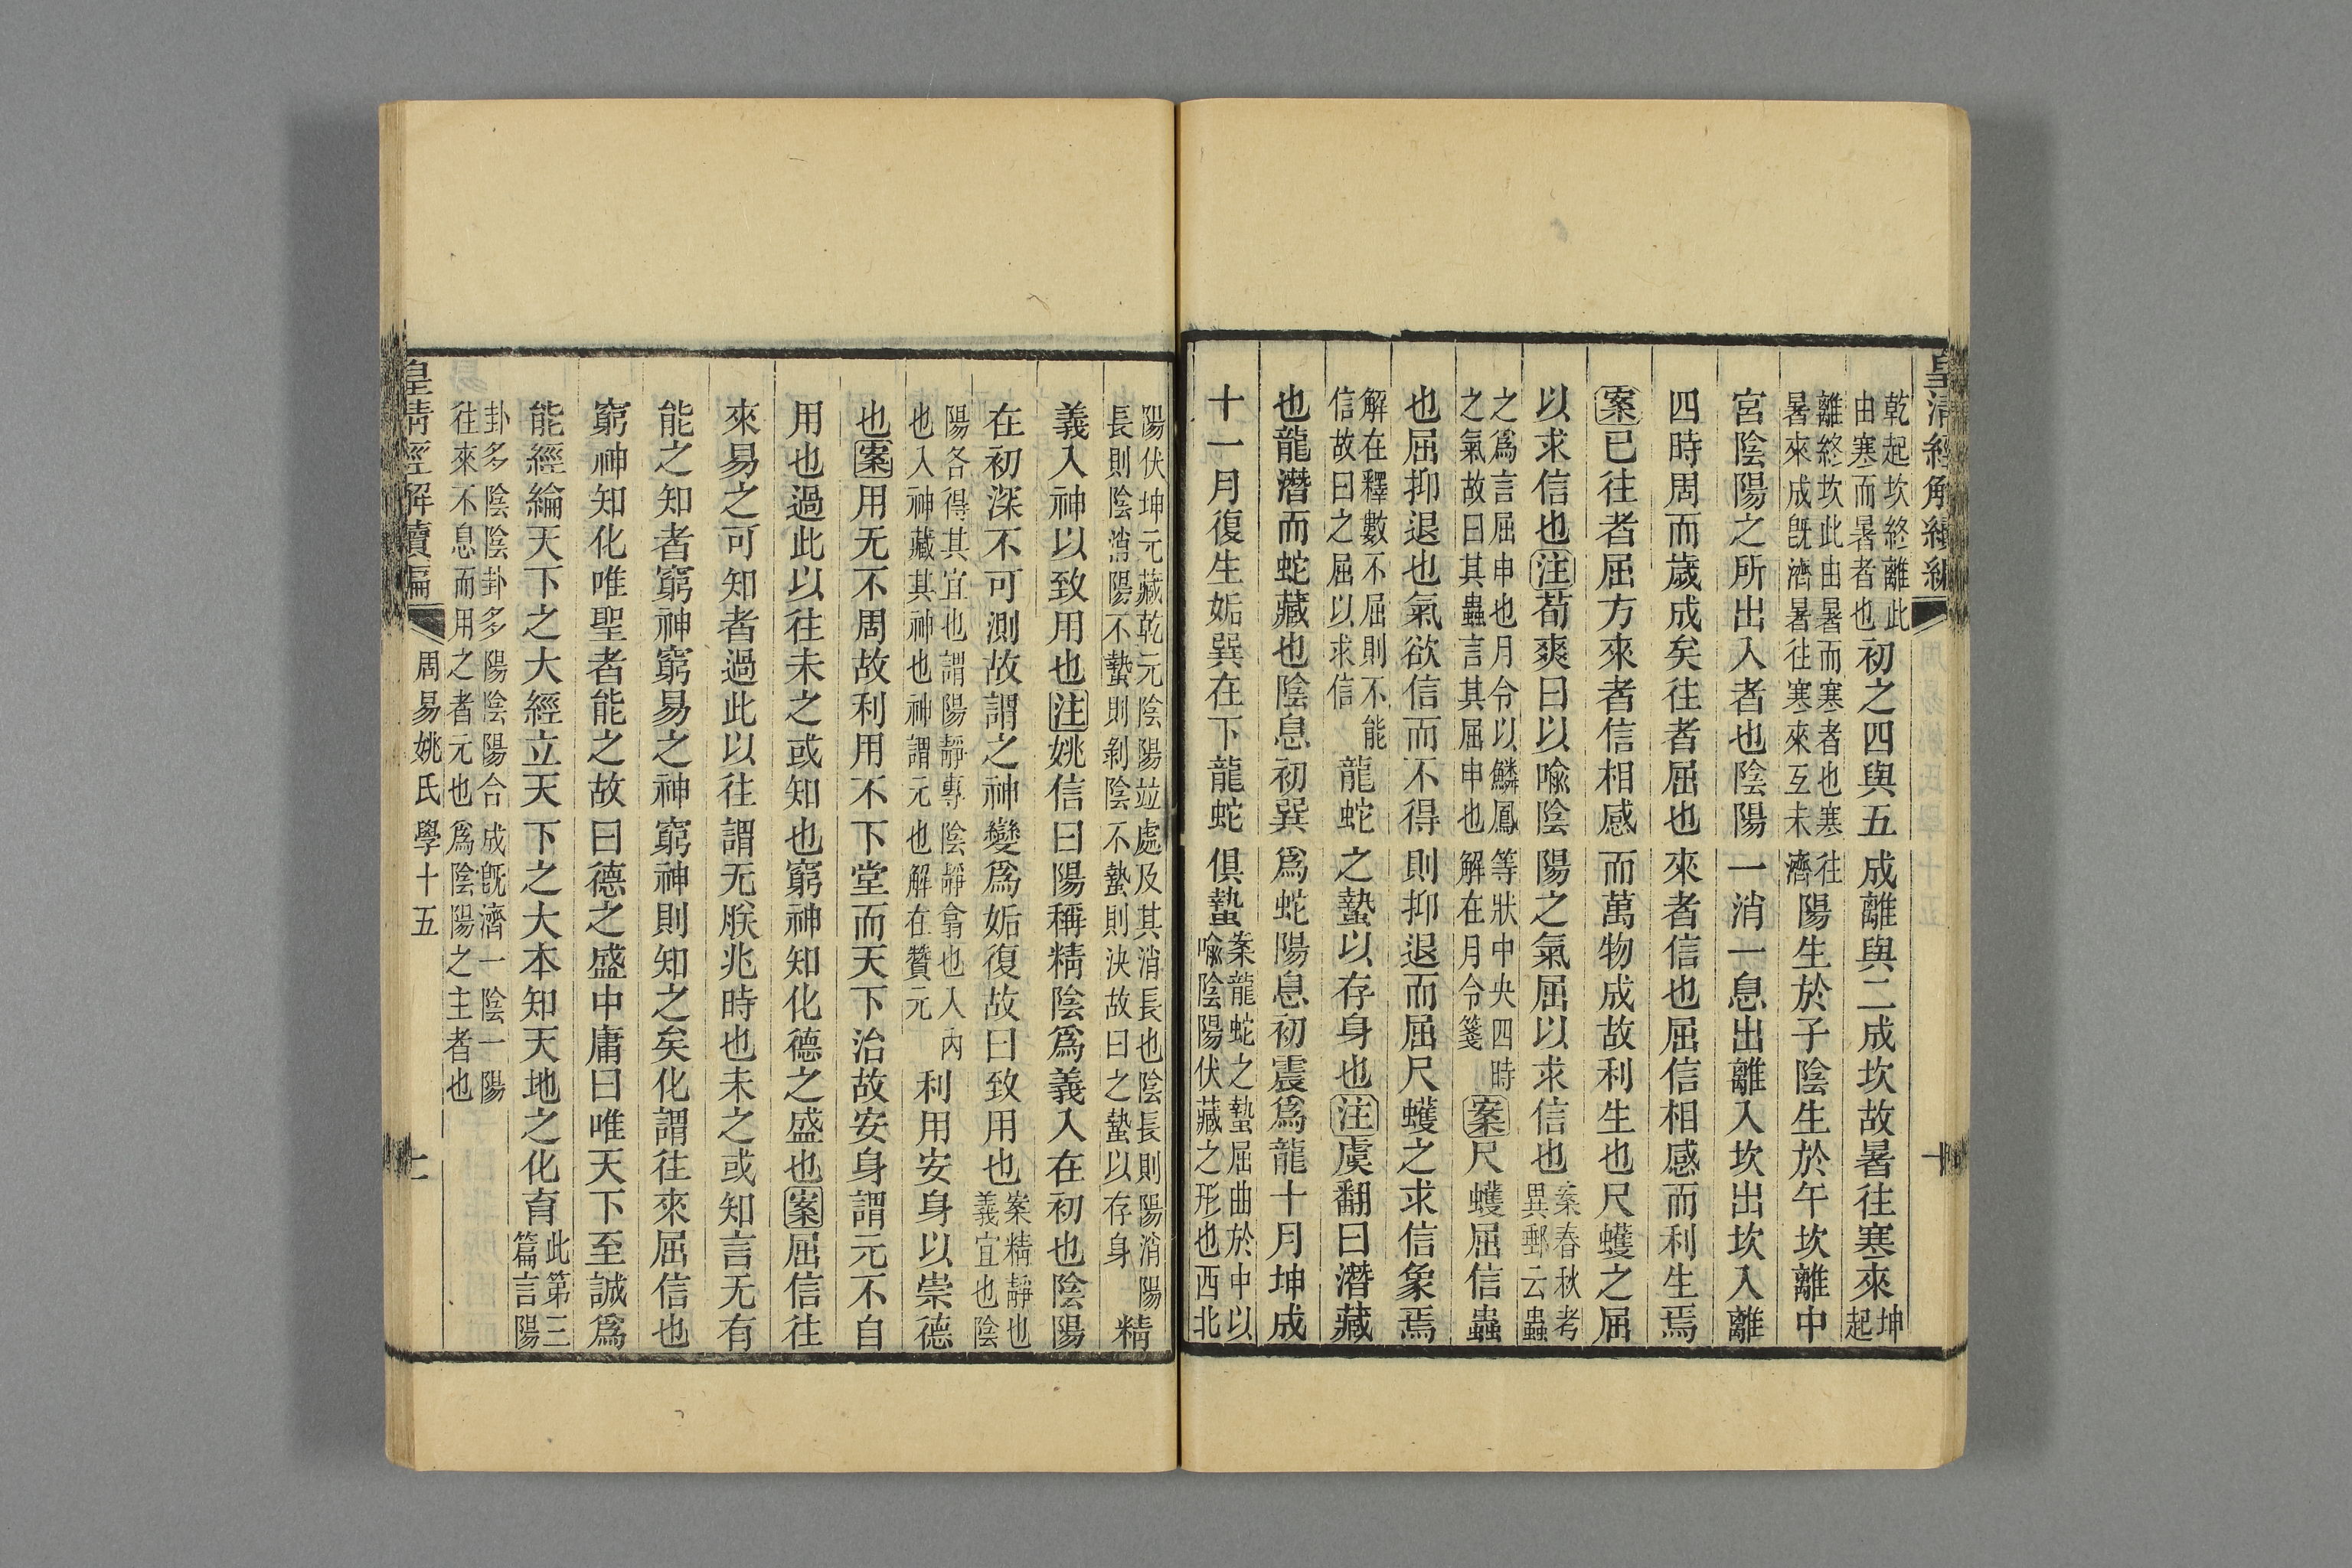 皇清經解續編
乾起坎終離此
由寒而暑者也
初之四與五成離與二成坎故暑往寒來
坤
起
離終坎此由暑而寒者也寒往
暑來成旣濟暑往寒來互未濟
陽生於子陰生於午坎離中
宮陰陽之所出入者也陰陽一消一息出離入坎出坎入離
四時周而歲成矣往者屈也來者信也屈信相感而利生焉
案已往者屈方來者信相感而萬物成故利生也尺蠖之屈
以求信也注荀爽曰以喩陰陽之氣屈以求信也
案春秋考
異郵云蟲
之爲言屈申也月令以鱗鳳等狀中央四時
之氣故曰其蟲言其屈申也解在月令箋
案尺蠖屈信蟲
也屈抑退也氣欲信而不得則抑退而屈尺蠖之求信象焉
解在釋數不屈則不能
信故曰之屈以求信
龍蛇之蟄以存身也注虞翻曰潛藏
也龍潛而蛇藏也陰息初巽爲蛇陽息初震爲龍十月坤成
十一月復生姤巽在下龍蛇俱蟄
案龍蛇之蟄屈曲於中以
喩陰陽伏藏之形也西北
十
陽伏坤元藏乾元陰陽竝處及其消長也陰長則陽消陽
長則陰消陽不蟄則剝陰不蟄則決故曰之蟄以存身
精
義入神以致用也注姚信曰陽稱精陰爲義入在初也陰陽
在初深不可測故謂之神變爲姤復故曰致用也
案精靜也
義宜也陰
陽各得其宜也謂陽靜專陰靜翕也人內
也入神藏其神也神謂元也解在贊元
利用安身以崇德
也案用无不周故利用不下堂而天下治故安身謂元不自
用也過此以往未之或知也窮神知化德之盛也案屈信往
來易之可知者過此以往謂无朕兆時也未之或知言无有
能之知者窮神窮易之神窮神則知之矣化謂往來屈信也
窮神知化唯聖者能之故曰德之盛中庸曰唯天下至誠爲
能經綸天下之大經立天下之大本知天地之化育
此第三
篇言陽
卦多陰陰卦多陽陰陽合成旣濟一陰一陽
往來不息而用之者元也爲陰陽之主者也
皇清經解續編
周易姚氏學十五